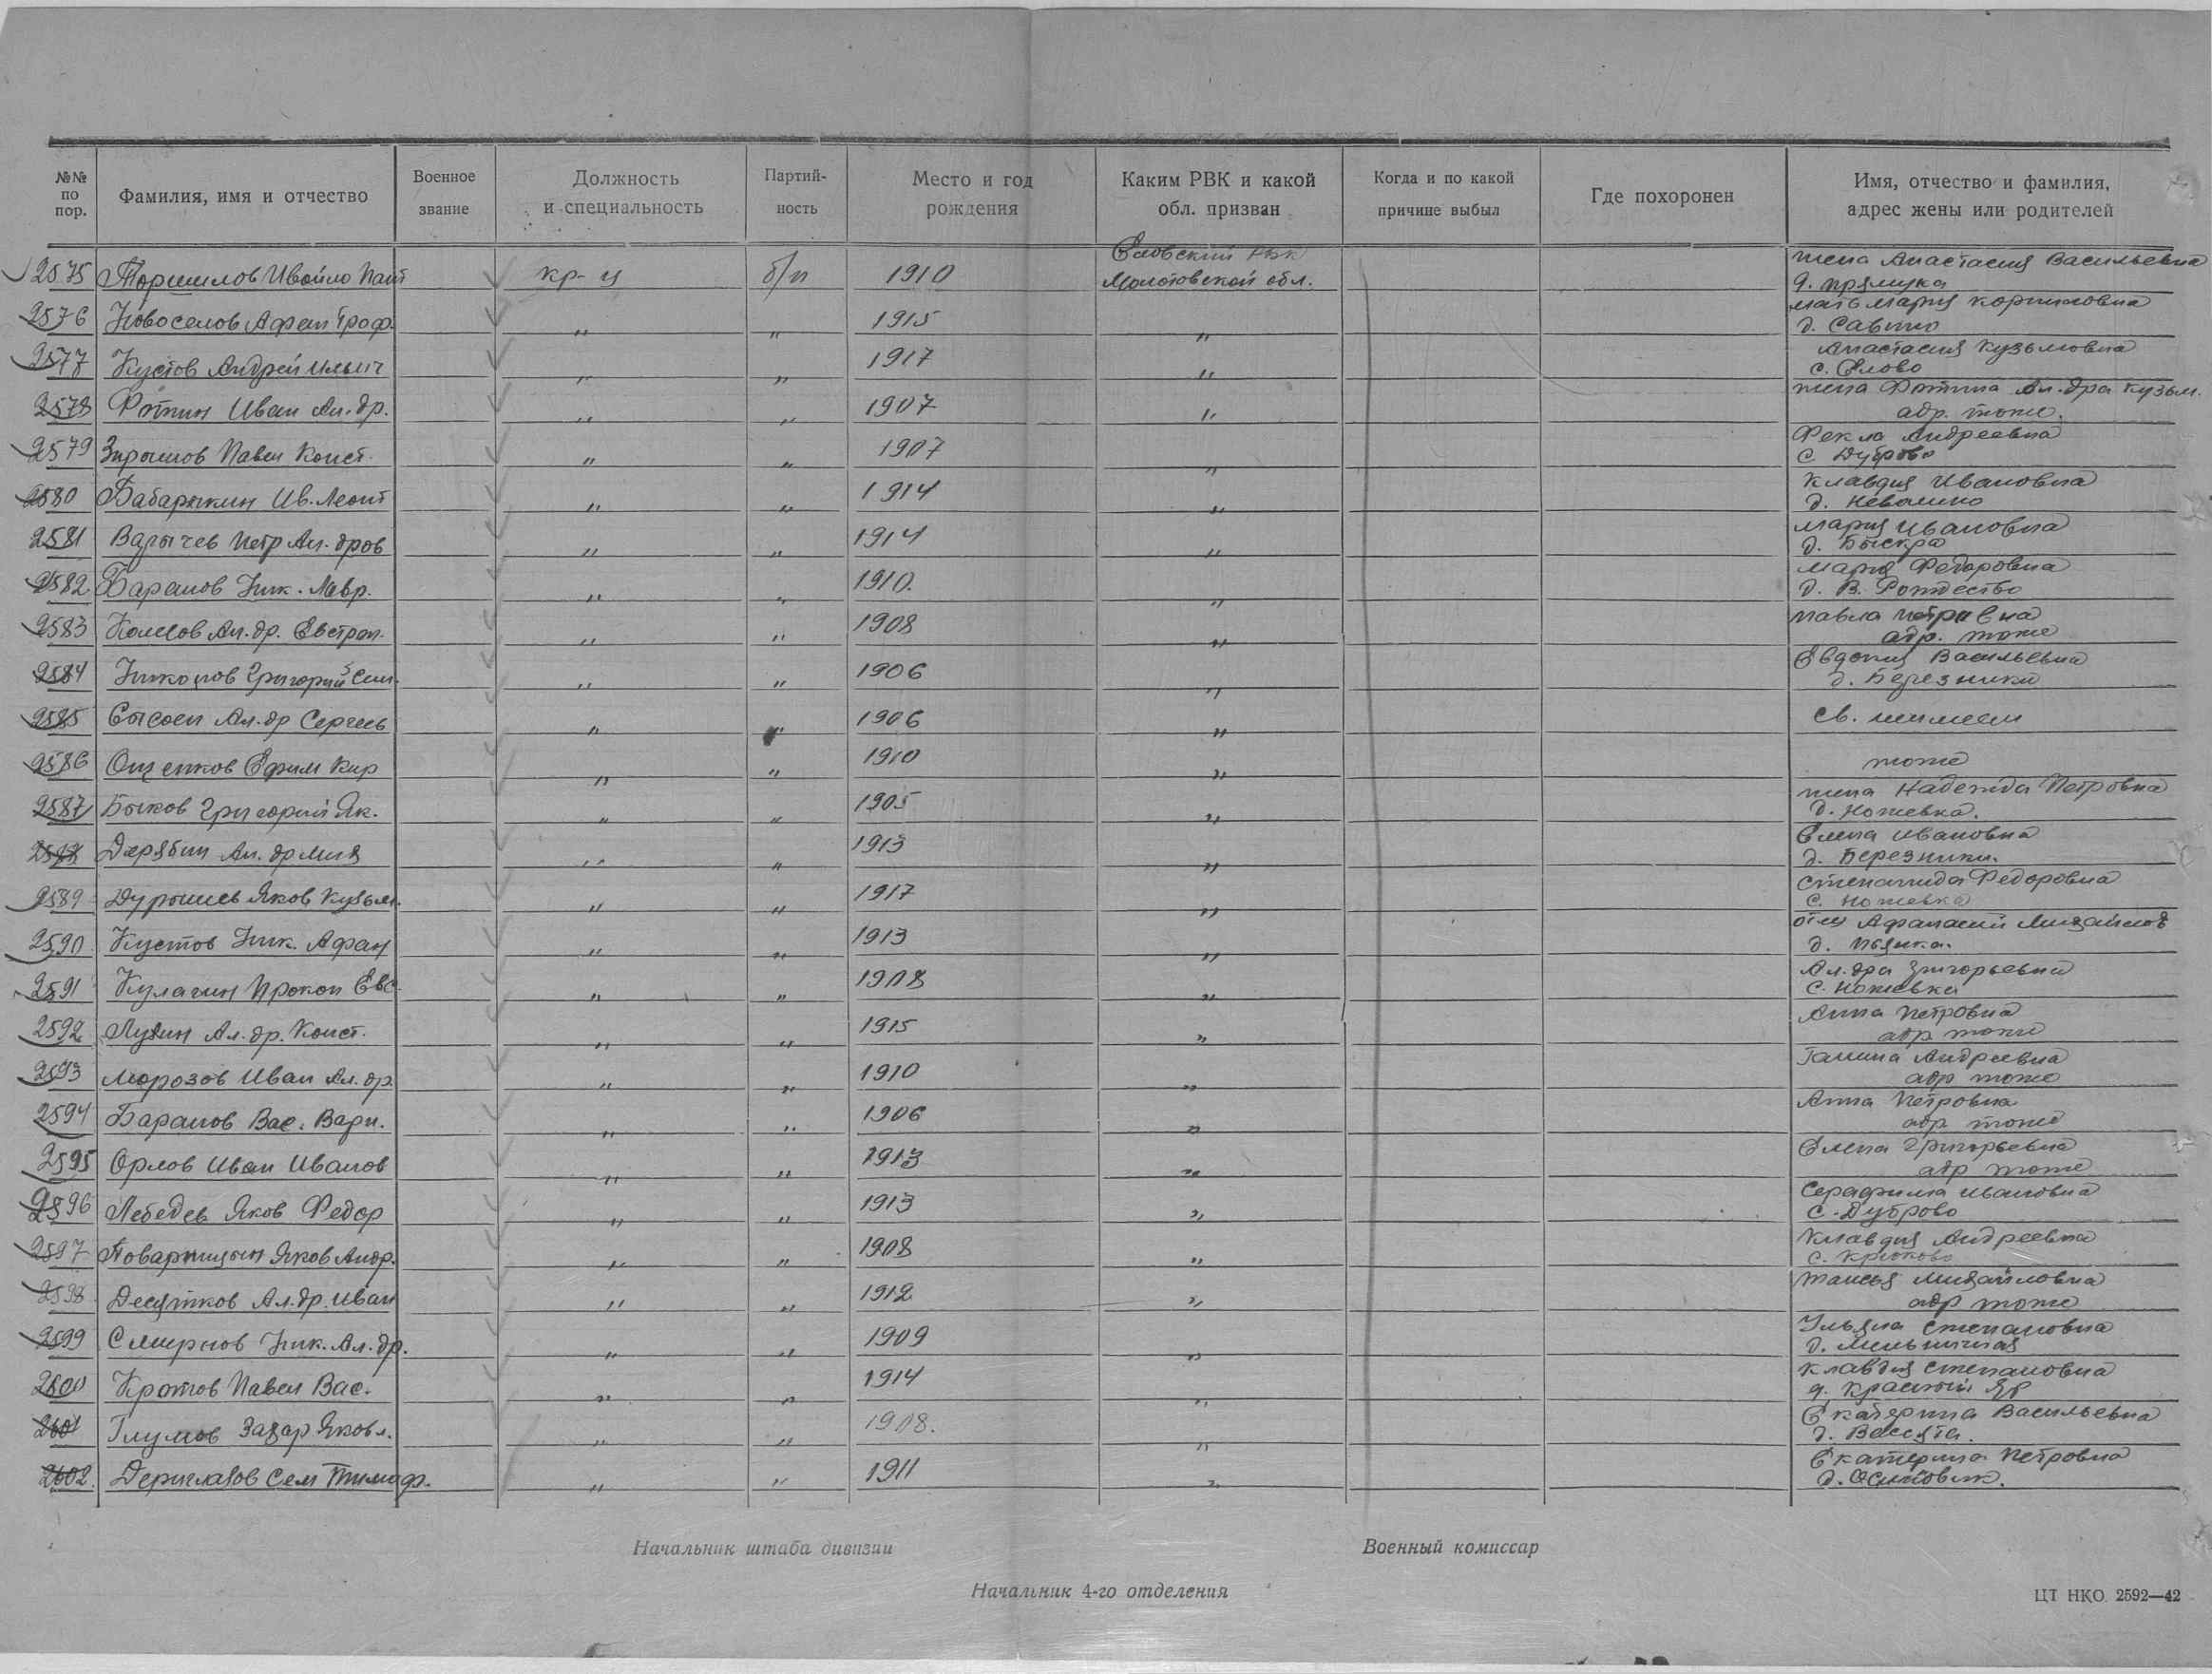 №№ по пор.
Фамилия, имя и отчество
Военное звание
Должность и специальность
Партий- ность
Место и год рождения
Каким РВК и какой обл. призван
Когда и по какой причине выбыл
Где похоронен
Имя, отчество и фамилия, адрес жены или родителей
2575 кр-ц б/п 1910 Еловский РВК Молотовской обл. жена Анастасия Васильевна
д.
2576 Новоселов Афан Троф. " " 1915 " мать Мария
д. Савино
2577 Кустов Андрей Ильич " " 1917 " Анастасия Кузьмовна
с. Елово
2578 Фотин Иван Ал-др. " " 1907 " жена Фотина Ал-дра Кузьм.
адр. тоже.
2579 Павел Конст. " " 1907 " Фекла Андреевна
с. Дуброво
2580 Бабарыкин Ив. Леонт " " 1914 " Клавдия Ивановна
д.
2581 Петр Ал-дров " " 1914 " Мария Ивановна
д.
2582 Баранов Ник. Лавр. " " 1910. " Мария Федоровна
д. В. Рождество
2583 Ал-др. Евстрап. " " 1908 " Павла Петровна
адр. тоже
2584 Григорий Сем. " " 1906 " Евдокия Васильевна
д. Березники
2585 Ал-др Сергеев " " 1906 "
2586 Ощепков Ефим Кир " " 1910 " тоже
2587 Быков Григорий Як. " " 1905 " жена Надежда Петровна
д. Ножевка.
2588 Дерябин Ал-др Мих " " 1913 " Елена Ивановна
д. Березники.
2589 Яков Кузьм. " " 1917 " Степанида Федоровна
с. Ножевка
2590 Кустов Ник. Афан " " 1913 " отец Афанасий Михайлов
д.
2591 Кулагин Прокоп Евс " " 1908 " Ал-дра Григорьевна
с. Ножевка
2592 Ал-др. Конст. " " 1915 " Анна Петровна
адр тоже
2593 Морозов Иван Ал-др. " " 1910 " Галина Андреевна
адр тоже
2594 Баранов Вас. " " 1906 " Анна Петровна
адр тоже
2595 Орлов Иван Иванов " " 1913 " Елена Григорьевна
адр тоже
2596 Лебедев Яков Федор " " 1913 " Серафима Ивановна
с. Дуброво
2597 Поварницын Яков Андр. " " 1908 " Клавдия Андреевна
с. Крюково
2598 Десятков Ал-др. Иван " " 1912 " Таисья Михайловна
адр тоже
2599 Смирнов Ник. Ал-др. " " 1909 " Ульяна Степановна
д. Мельничная
2600 Кротов Павел Вас. " " 1914 " Клавдия Степановна
д. Красный Яр
2601 Глумов Захар Яковл. " " 1908. " Екатерина Васильевна
д.
2602 Дериглазов Сем Тимоф. " " 1911 " Екатерина Петровна
д. Осиновик.
Начальник штаба дивизии
Военный комиссар
Начальник 4-го отделения
ЦТ НКО 2592—42